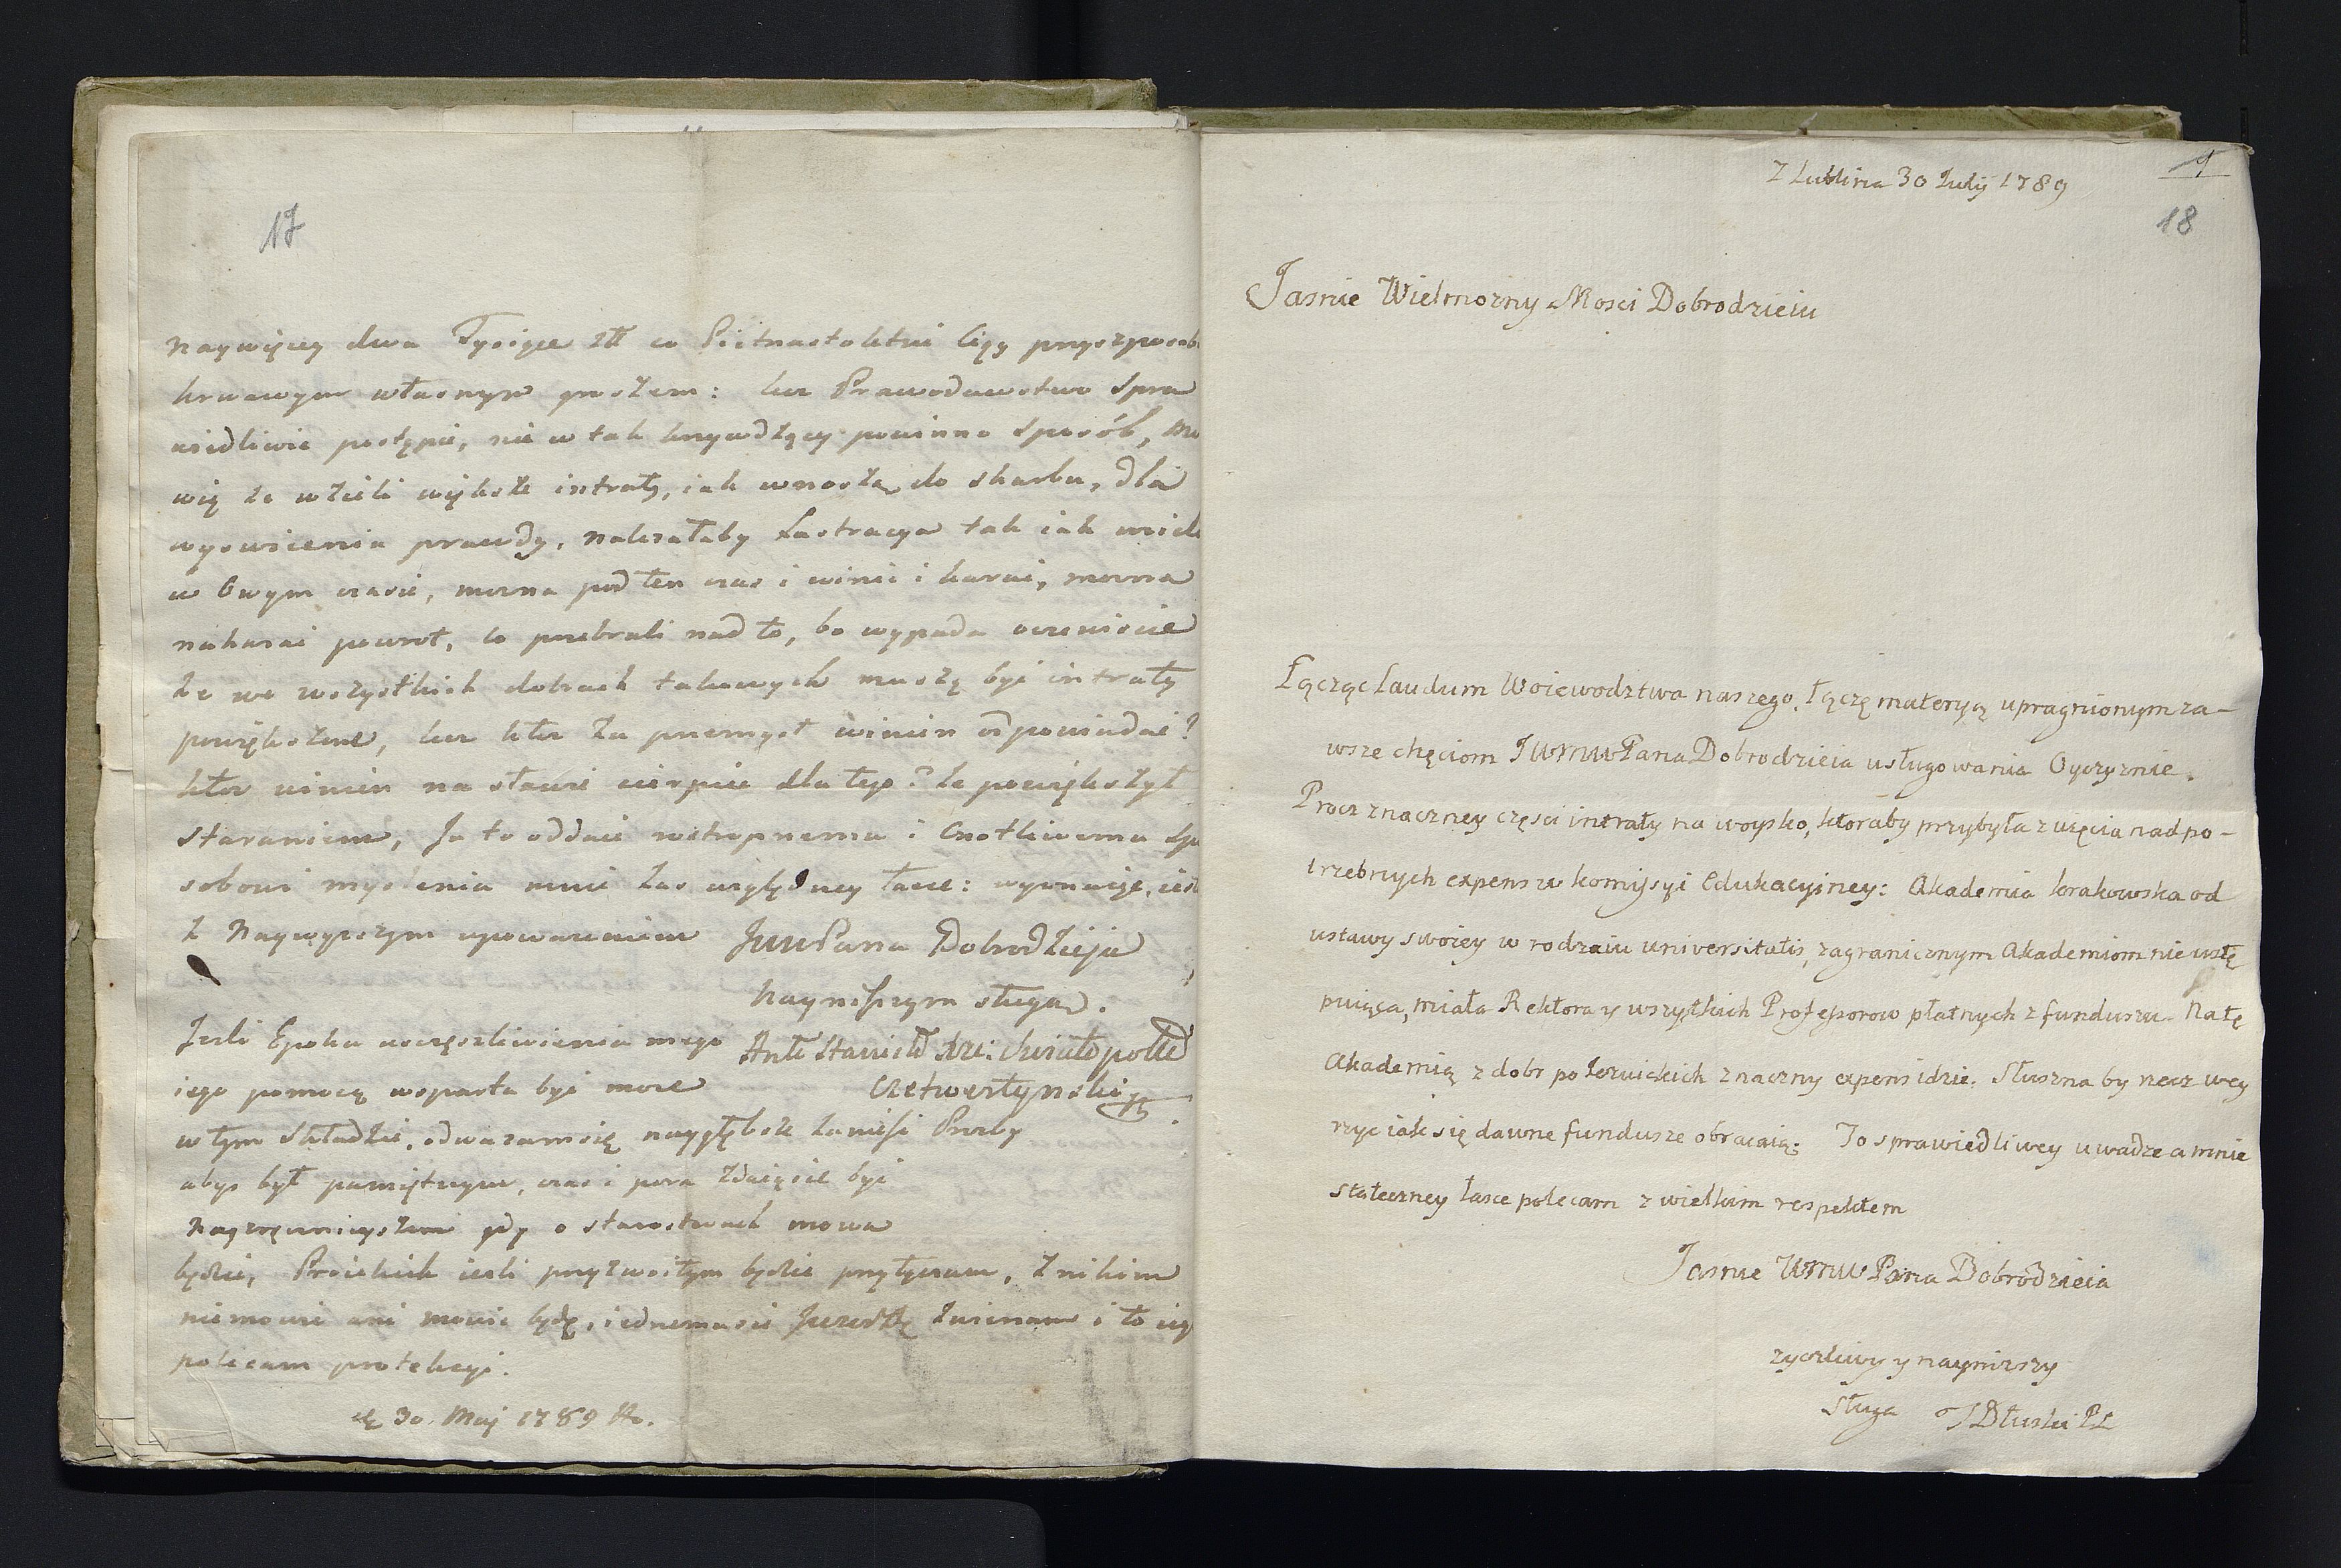 17
naywięcey dwa Tysiące złł co Pietnastoletni Ciąg przyszposob
krwawym własnym groszem: lecz Prawodawstwo Spra
wiedliwie postąpić, nie w tak krzywdzący powinno Sposób, mo
wią że wzieli większe intraty, iak wnoszą do skarbu, dla
wyswiecenia prawdy, należałaby Lustracya tak iak
w Owym czasie, mozna pod ten czas i winić i karać, mozna
nakazać powrot, co przebrali nad to, bo wypada oczewiscie
że we wszystkich dobrach takowych muszą być intraty
powiększone, lecz ktoz za przemysł winien odpowiadać?
ktoz winien na sławie cierpieć dla tego? że powiększył
Staraniem, Ja to oddaie roztropnemu i Cnotliwemu Spo
sobowi myslenia mnie zas względney łasce: wyznaiąc, iest
z Naywyzszym upowazeniem JWW Pana Dobrodzieja
Nayniższym sługą.
Jeśli Epoka uszczęsliwienia mego Ant: Stanisł: Xże: Swiatopołk
iego pomocą wsparta być moze Czetwertynski
w tym Składzie, odwazam się naygłębsze zanieść Prozby
abys był pamiętnym, czas i pora zdaięsie być
nayzręcznieyszemi gdy o starostwach mowa
będzie, Prosekich iesli przyzwoitym będzie przyłączam, z nikim
niemowie ani mowic będę, iednemusie zwierzam i to iey
polecam protekcyi.
d 30 Maj 1789 Ro.
Z Lublina 30 Julÿ 1789
9
18
Jasnie Wielmozny Mosci Dobrodzieiu
Łącząc Laudum Woiewodztwa naszego, łączę materyą upragnionym za-
wsze chęciom JWMWPana Dobrodzieia usługowania Oyczyznie.
Procz znaczney częsci intraty na woysko, ktoraby przybyła z uięcia nad po-
trzebnych expens w komissyi Edukacyiney: Akademia krakowska od
ustawy swoiey w rodzaiu universitatis, zagranicznym Akademiom nie ustę
puiąca, miała Rektora y wszystkich Professorow płatnych z funduszu. Na tę
Akademią z dobr poIezuickich znaczny expens idzie. Słuszna by rzecz wey
rzyc iak się dawne fundusze obracaią: To sprawiedliwey uwadze a mnie
stateczney łasce polecam z wielkim respektem
Jasnie WMMWPana Dobrodzieia
zyczliwy y nayniższy
Sługa JDłuski PL